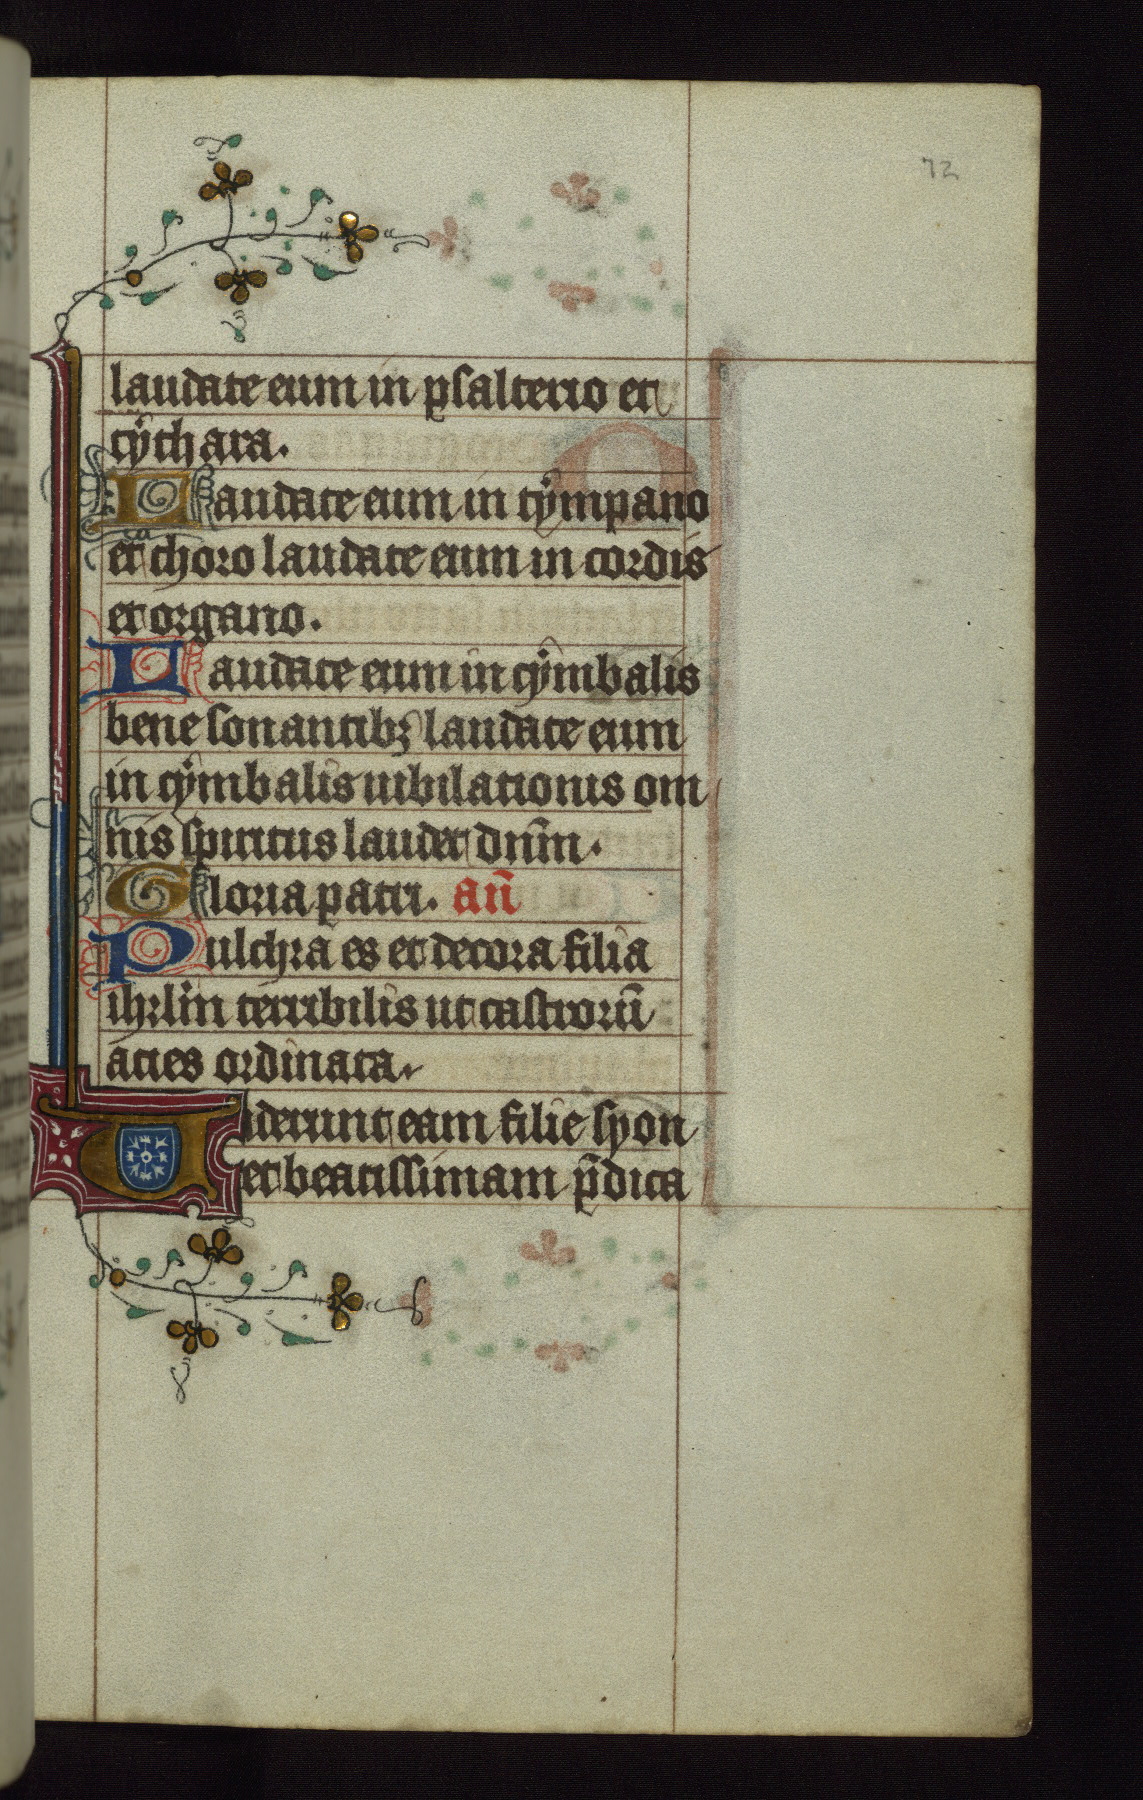 72
laudate eum in psalterio et
cythara.
Laudate eum in tympano
et choro laudate eum in cordis
et organo.
Laudate eum in cymbalis
bene sonantibꝫ laudate eum
in cymbalis iubilationis om
nis spiritus laudet dnm̄.
Gloria patri. an̄
Pulchra es et decora filia
ihrlm̄ terribilis ut castrorū
acies ordinata.
Uiderunt eam filie syon
et beatissimam p̄dica